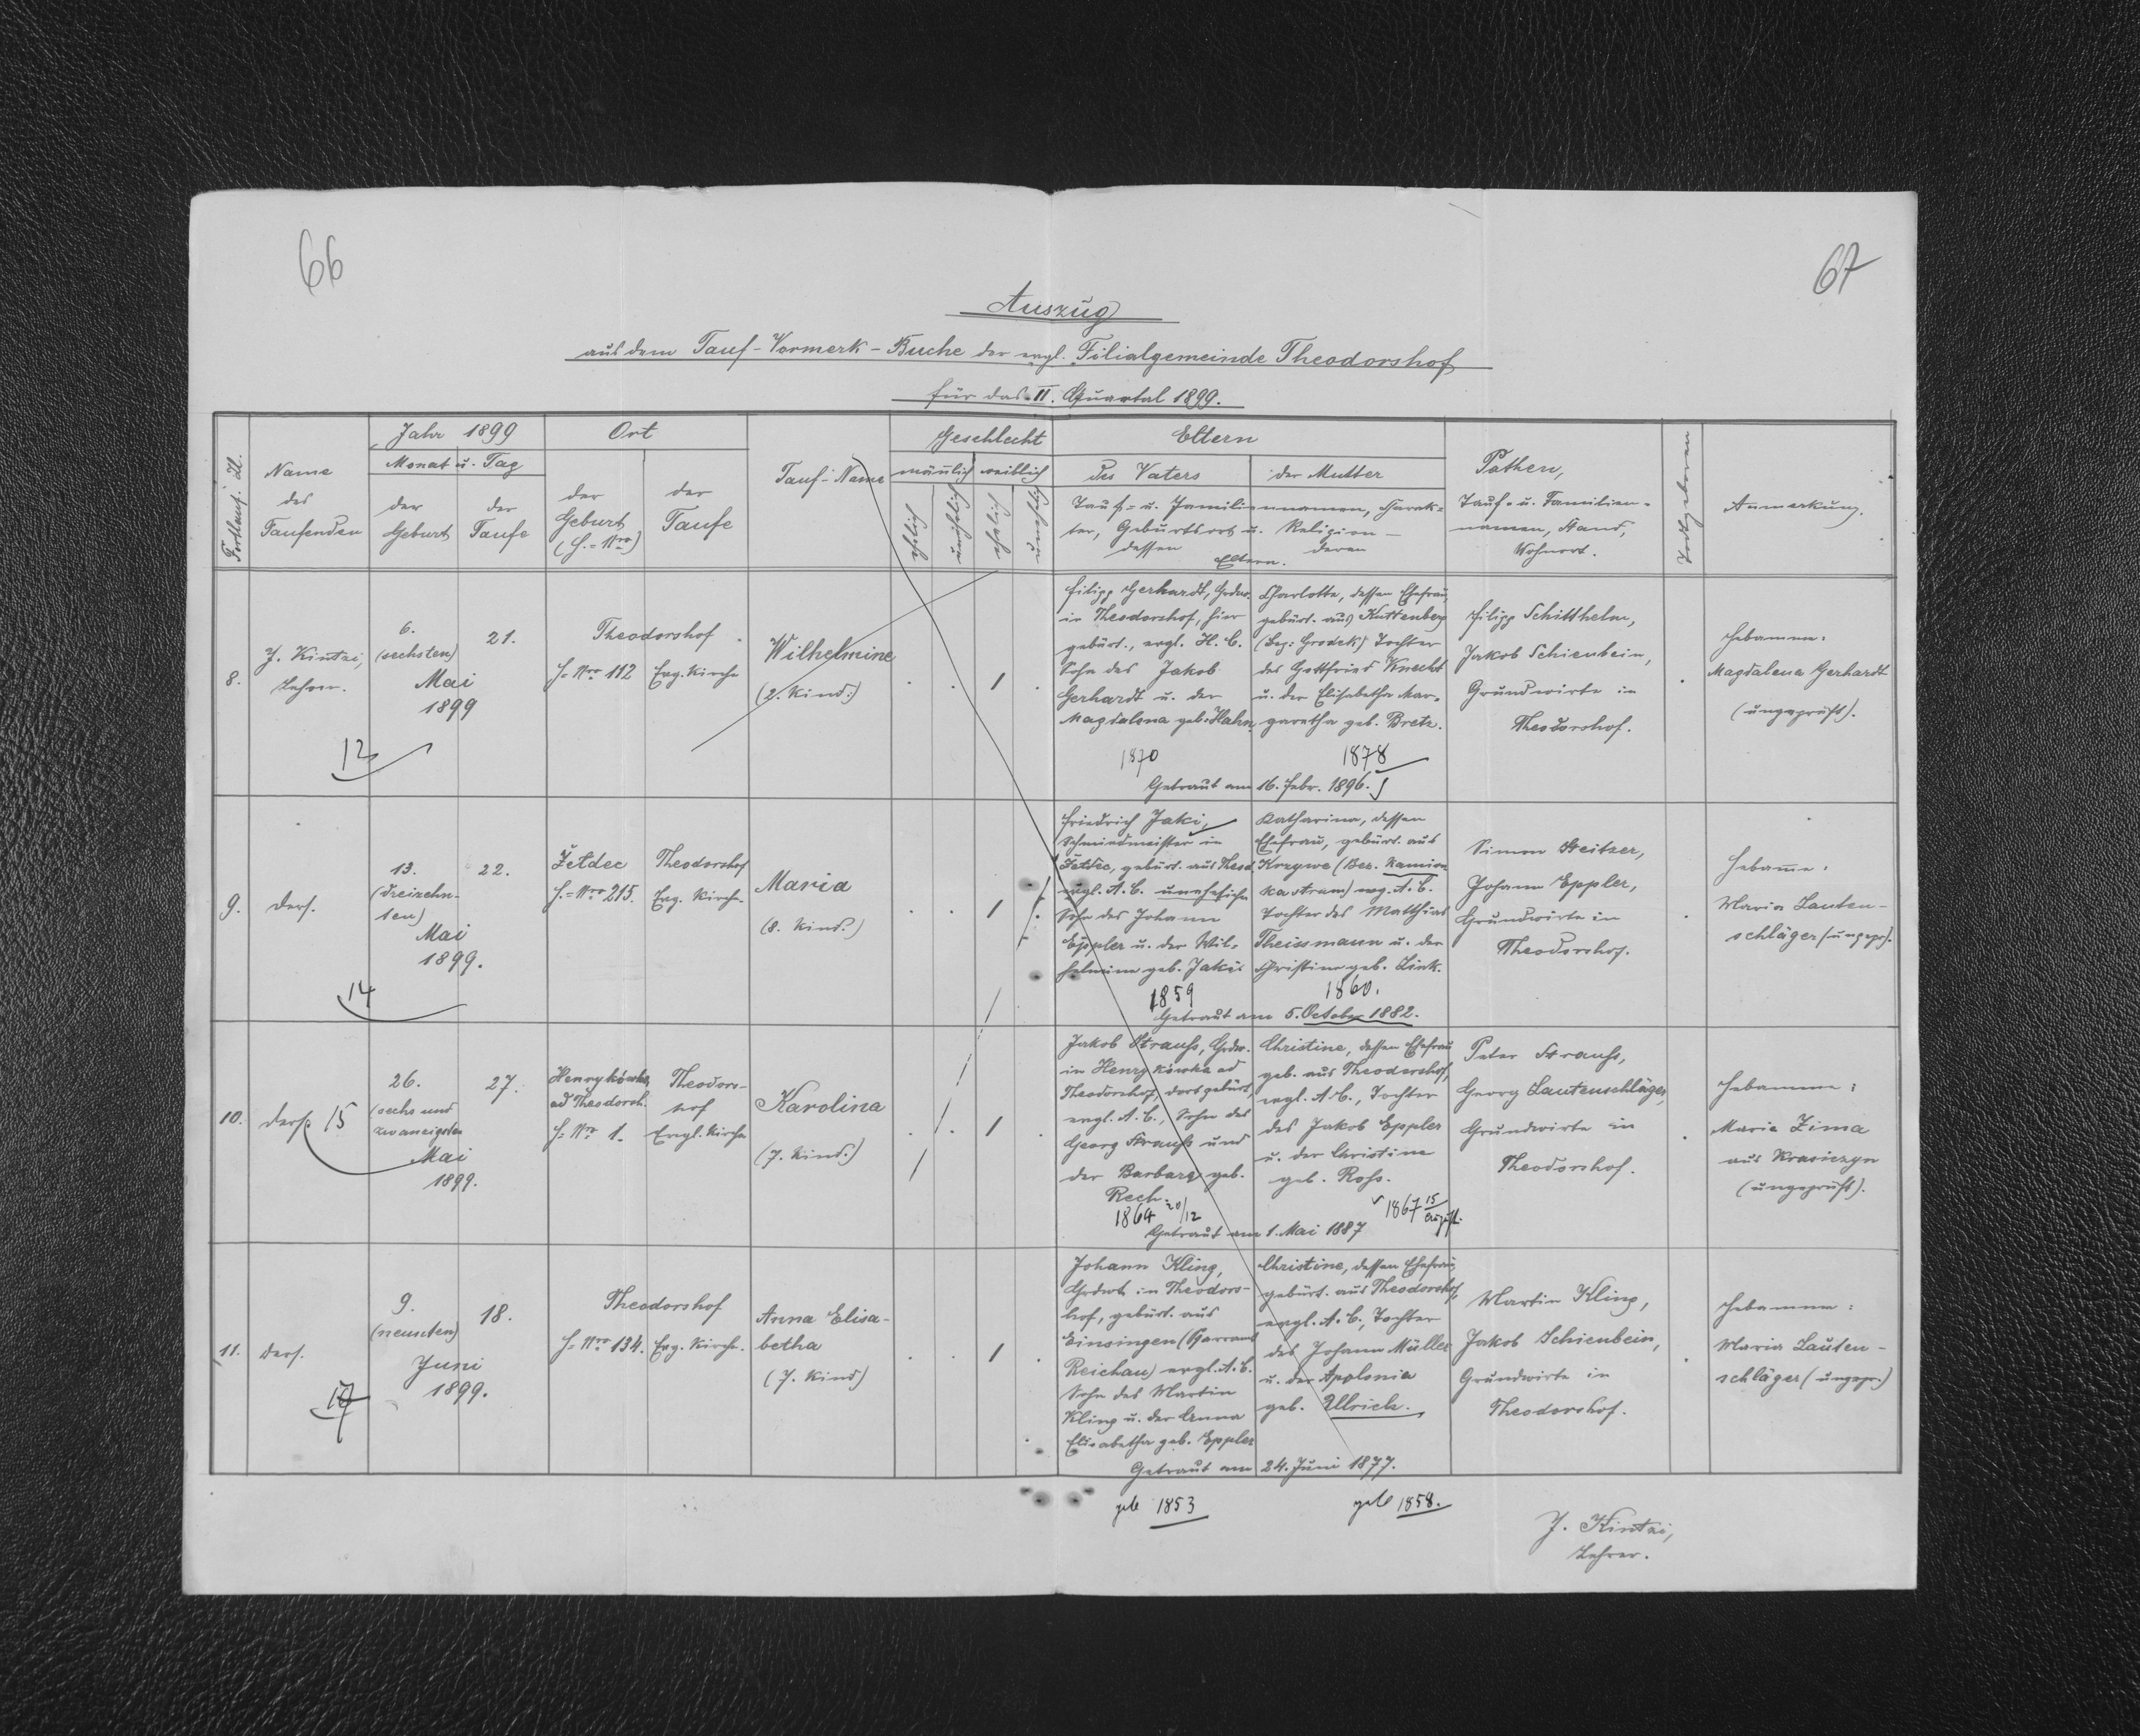 66
67
Auszug
aus dem Tauf-Vormerk-Buche der evgl. Filialgemeinde Theodorshof
für das II. Quartal 1899.
Fortlauf. Zl.
Name
des
Taufenden
Jahr 1899
Monat u. Tag
der
Geburt
der
Taufe
Ort
der
Geburt
(H.=Nro)
der
Taufe
Tauf-Name
Geschlecht
männlich weiblich
ehelich
unehelich
ehelich
unehelich
Eltern
des Vaters
der Mutter
Tauf= u. Familiennamen, Charak=
ter, Geburtsort u. Religion –
dessen deren
Eltern.
Pathen,
Tauf- u. Familien-
namen, Stand,
Wohnort.
Todtgeboren
Anmerkung.
8.
J. Kintzi,
Lehrer.
12
6.
(sechsten)
Mai
1899
21.
Theodorshof
H=Nro 112
Evg. Kirche
Wilhelmine
(2. Kind.)
1
Filipp Gerhardt, Grdw.
in Theodorshof, hier
gebürt., evgl. H. C.
Sohn des Jakob
Gerhardt u. der
Magdalena geb. Hahn.
1870
Charlotte, dessen Ehefrau,
gebürt. aus Kuttenberg
(Bez: Grodek) Tochter
des Gottfried Knecht
u. der Elisabetha Mar=
garetha geb. Bretz.
1878
Getraut am 16. Febr. 1896.
Filipp Schitthelm,
Jakob Schienbein,
Grundwirte in
Theodorshof.
Hebamme:
Magdalena Gerhardt
(ungeprüft).
9.
ders.
14
13.
(dreizehn-
ten)
Mai
1899.
22.
Żełdec
H.=Nro 215.
Theodorshof
Evg. Kirche.
Maria
(8. Kind.)
1
Friedrich Jaki,
Schmiedmeister in
Żełdec, gebürt. aus Theod.
evgl. A. C. unehelicher
Sohn des Johann
Eppler u. der Wil=
helmine geb. Jaki
1859
Katharina, dessen
Ehefrau, gebürt. aus
Krzywe (Bez. Kamion
ka strum) evg. A. C.
Tochter des Matthias
Theissmann u. der
Christine geb. Link.
1860.
Getraut am 5. October 1882.
Simon Steitzer,
Johann Eppler,
Grundwirte in
Theodorshof.
Hebamme:
Maria Lauten-
schläger (ungepr).
10.
ders. 15
26.
(sechs und
zwanzigsten
Mai
1899.
27.
Henrykówka,
ad Theodorsh.
H=Nro 1.
Theodors-
hof
Evgl. Kirche
Karolina
(7. Kind.)
1
Jakob Strauss, Grdw.
in Henrykówka ad
Theodorshof, dort gebürt.,
evgl. A. C., Sohn des
Georg Strauss und
der Barbara geb.
Rech.
1864 20/12
Christine, dessen Ehefrau
geb. aus Theodorshof,
evgl. A. C., Tochter
des Jakob Eppler
u. der Christine
geb. Rohs.
1867 15 August.
Getraut am 1. Mai 1887
Peter Strauss,
Georg Lautenschläger,
Grundwirte in
Theodorshof.
Hebamme:
Maria Zima
aus Krasiczyn
(ungeprüft).
11.
ders.
17
9.
(neunten)
Juni
1899.
18.
Theodorshof
H=Nro 134.
Evg. Kirche.
Anna Elisa-
betha
(7. Kind)
1
Johann Kling,
Grdwt. in Theodors-
hof, gebürt. aus
Einsingen (Pfarramt
Reichau) evgl. A. C.
Sohn des Martin
Kling u. der Anna
Elisabetha geb. Eppler
Christine, dessen Ehefrau,
gebürt. aus Theodorshof,
evgl. A. C., Tochter
des Johann Müller
u. der Apolonia
geb. Ullrich.
Getraut am 24. Juni 1877.
geb 1853
geb 1858.
Martin Kling,
Jakob Schienbein,
Grundwirte in
Theodorshof.
Hebamme:
Maria Lauten-
schläger (ungepr.)
J. Kintzi,
Lehrer.